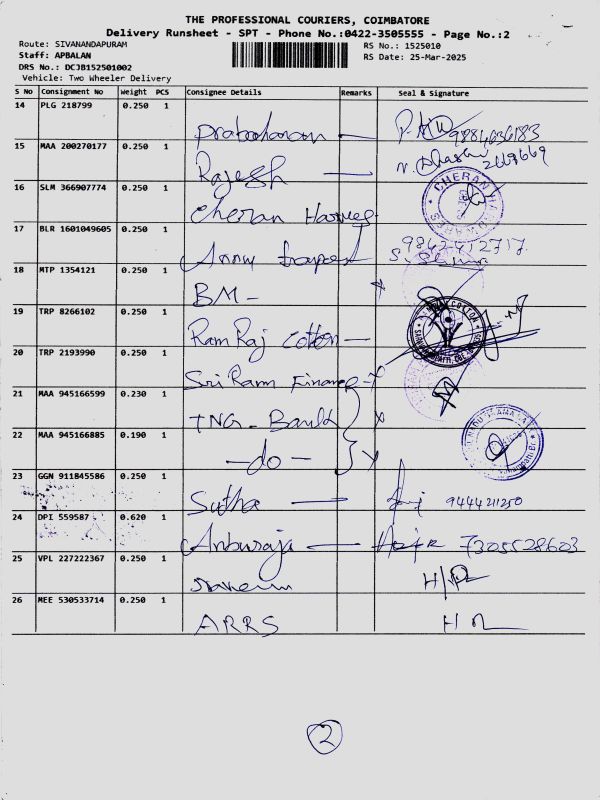 THE PROFESSIONAL COURIERS, COIMBATORE
Delivery Runsheet - SPT - Phone No.:0422-3505555 - Page No.:2
Route: SIVANANDAPURAM RS No.: 1525010
Staff: APBALAN RS Date: 25-Mar-2025
DRS No.: DCJB152501002
Vehicle: Two Wheeler Delivery
S No Consignment No Weight PCS Consignee Details Remarks Seal & Signature
14 PLG 218799 0.250 1
Prabaharan 9884636183
15 MAA 200270177 0.250 1
Rajesh
16 SLM 366907774 0.250 1
Cheran
CHERAN
17 BLR 1601049605 0.250 1
9842412717
18 MTP 1354121 0.250 1
BM -
19 TRP 8266102 0.250 1
Ram Raj Cotton -
COTTON
20 TRP 2193990 0.250 1
Sri Ram Finance
21 MAA 945166599 0.230 1
TNG - Bank
22 MAA 945166885 0.190 1
- do -
23 GGN 911845586 0.250 1
Sutha 9444211250
24 DPI 559587 0.620 1
Anburaja 7305528603
25 VPL 227222367 0.250 1
26 MEE 530533714 0.250 1
ARRS
2